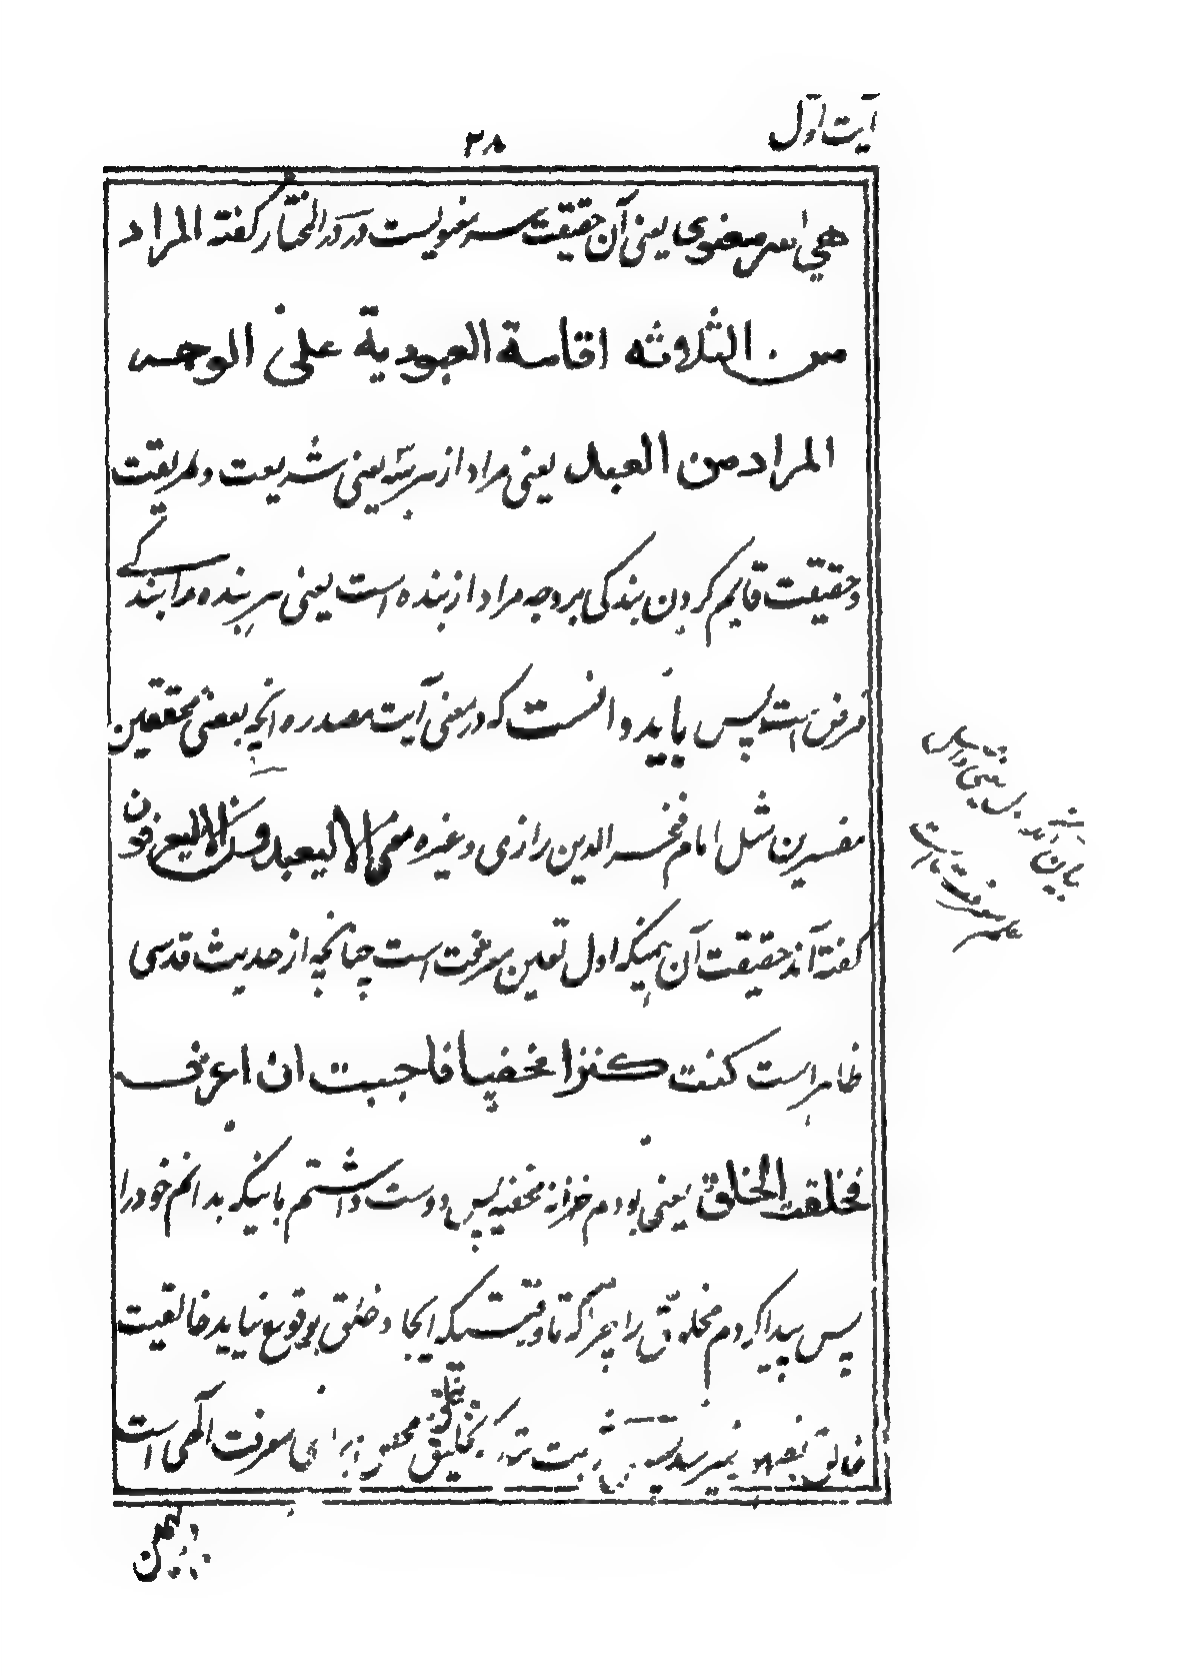 آیت اول
۲۸
هی سر معنوی یعنی آن حقیقت سر معنویست و در در المختار گفته المراد
من الثلاثه اقامة العبودية على الوجه
المراد من العبد یعنی مراد از هر سه یعنی شریعت و طریقت
و حقیقت قایم کردن بندگی بر وجه مراد از بنده است یعنی هر بنده را بندگے
فرض است پس باید دانست که در معنی آیت مصدره انچه بعضی محققین
مفسرین مثل امام فخر الدین رازی و غیره معنی الا لیعبدون الا لیعرفون
گفته‌اند حقیقت آن اینکه اول تعین معرفت است چنانچه از حدیث قدسی
ظاهر است کنت کنزا مخفیا فاحببت ان اعرف
فخلقت الخلق یعنی بودم خزانه مخفیه پس دوست داشتم باینکه بدانم خود را
پس پیدا کردم مخلوق را چرا که تا وقتیکه ایجاد خلق بوقوع نیاید خالقیت
خالق بتخلیق محض برای معرفت الهی است